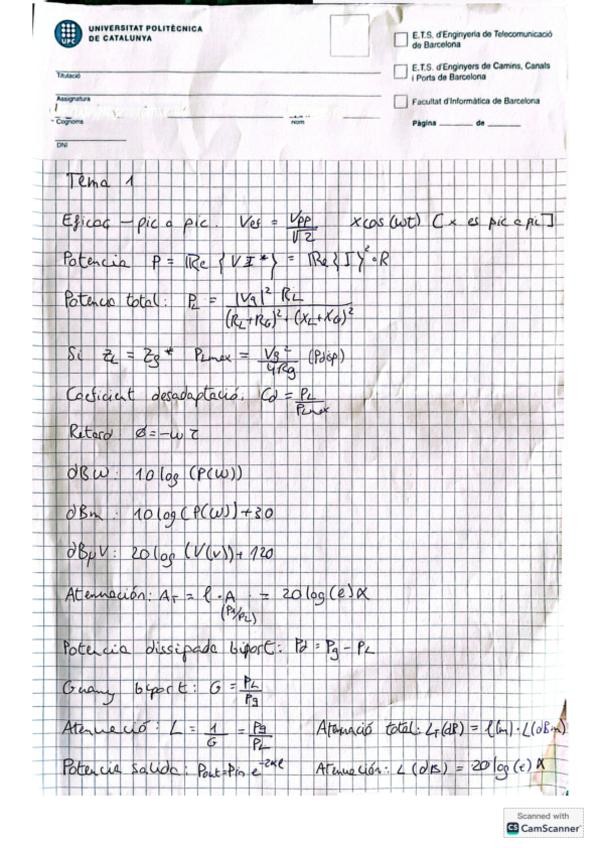 UNIVERSITAT POLITÈCNICA
DE CATALUNYA
UPC
E.T.S. d'Enginyeria de Telecomunicació
de Barcelona
E.T.S. d'Enginyers de Camins, Canals
i Ports de Barcelona
Facultat d'Informàtica de Barcelona
Pàgina ______ de ______
Titulació
Assignatura
Cognoms
Nom
DNI
Tema 1
Eficaç - pic a pic. Vef = Vpp/√2 xcos(ωt) [x es pic a pic]
Potencia P = Re{VI*} = Re{I}²·R
Potencia total: PL = |Vg|² RL / ((RL+RG)²+(XL+XG)²)
Si ZL = Zg* PLmax = Vg²/4Rg (Pdisp)
Coeficient desadaptació. Cd = PL/PLmax
Retard ø=-ωτ
dBW: 10log (P(W))
dBm: 10log(P(W))+30
dBμV: 20log (V(v))+120
Atenuación: AT = l·A = 20log(e)α
(Pg/PL)
Potencia dissipada biport: Pd = Pg - PL
Guany biport: G = PL/Pg
Atenuació: L = 1/G = Pg/PL Atenuació total: LT(dB) = l(m)·L(dB/m)
Potencia salida: Pout=Pin e^-2αl Atenuación: L(dB) = 20log(e)α
Scanned with
CS CamScanner